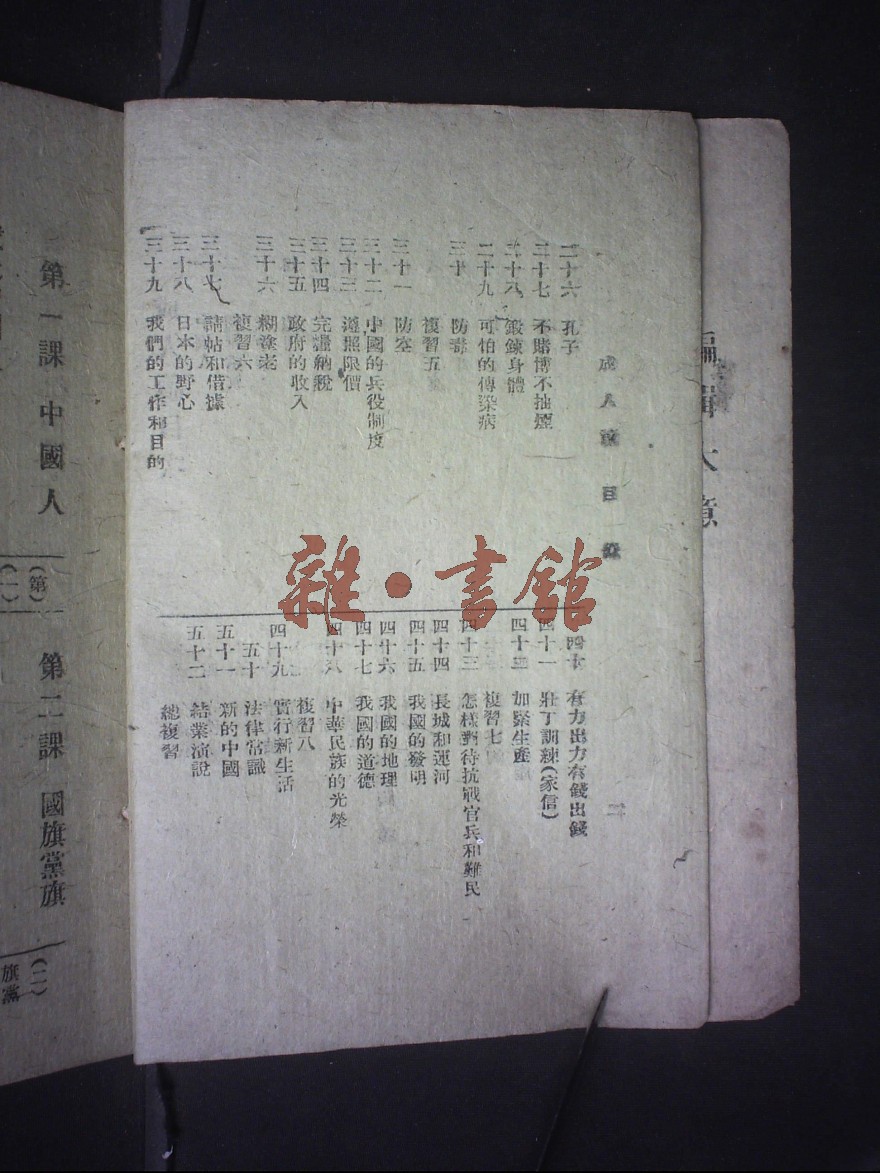 編輯大意
成人 目錄
二十六 孔子
二十七 不賭博不抽煙
二十八 鍛鍊身體
二十九 可怕的傳染病
三十 防毒
複習五
三十一 防空
三十二 中國的兵役制度
三十三 遵照限價
三十四 完糧納稅
三十五 政府的收入
三十六 糊塗老
複習六
三十七 請帖和借據
三十八 日本的野心
三十九 我們的工作和目的
四十 有力出力有錢出錢
四十一 壯丁訓練(家信)
四十二 加緊生產
複習七
四十三 怎樣對待抗戰官兵和難民
四十四 長城和運河
四十五 我國的發明
四十六 我國的地理
四十七 我國的道德
四十八 中華民族的光榮
複習八
四十九 實行新生活
五十 法律常識
五十一 新的中國
五十二 結業演說
總複習
雜·書館
第一課 中國人
第二課 國旗黨旗
(二)
旗黨